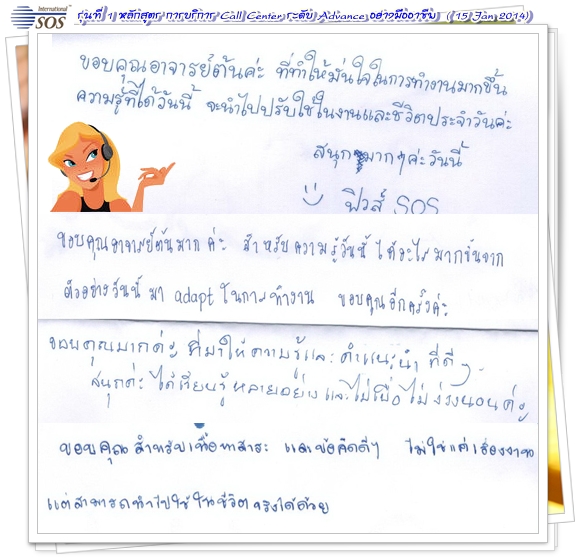 International
SOS
รุ่นที่ 1 หลักสูตร การบริการ Call Center ระดับ Advance อย่างมืออาชีพ (15 Jan 2014)
ขอบคุณอาจารย์ต้นค่ะ ที่ทำให้มั่นใจในการทำงานมากขึ้น
ความรู้ที่ได้วันนี้ จะนำไปปรับใช้ในงานและชีวิตประจำวันค่ะ
สนุกมากๆค่ะวันนี้
ฟิวส์ SOS
ขอบคุณอาจารย์ต้นมาก ค่ะ สำหรับความรู้วันนี้ ได้อะไรมากขึ้นจาก
ตัวอย่างวันนี้ มา adapt ในการทำงาน ขอบคุณอีกครั้งค่ะ
ขอบคุณมากค่ะ ที่มาให้ความรู้และ คำแนะนำ ที่ดีๆ
สนุกค่ะ ได้เรียนรู้หลายอย่าง และไม่เบื่อ ไม่ง่วงนอนค่ะ
ขอบคุณสำหรับเนื้อหาสาระ และข้อคิดดีๆ ไม่ใช่แค่เรื่องงาน
แต่สามารถนำไปใช้ในชีวิตจริงได้ด้วย